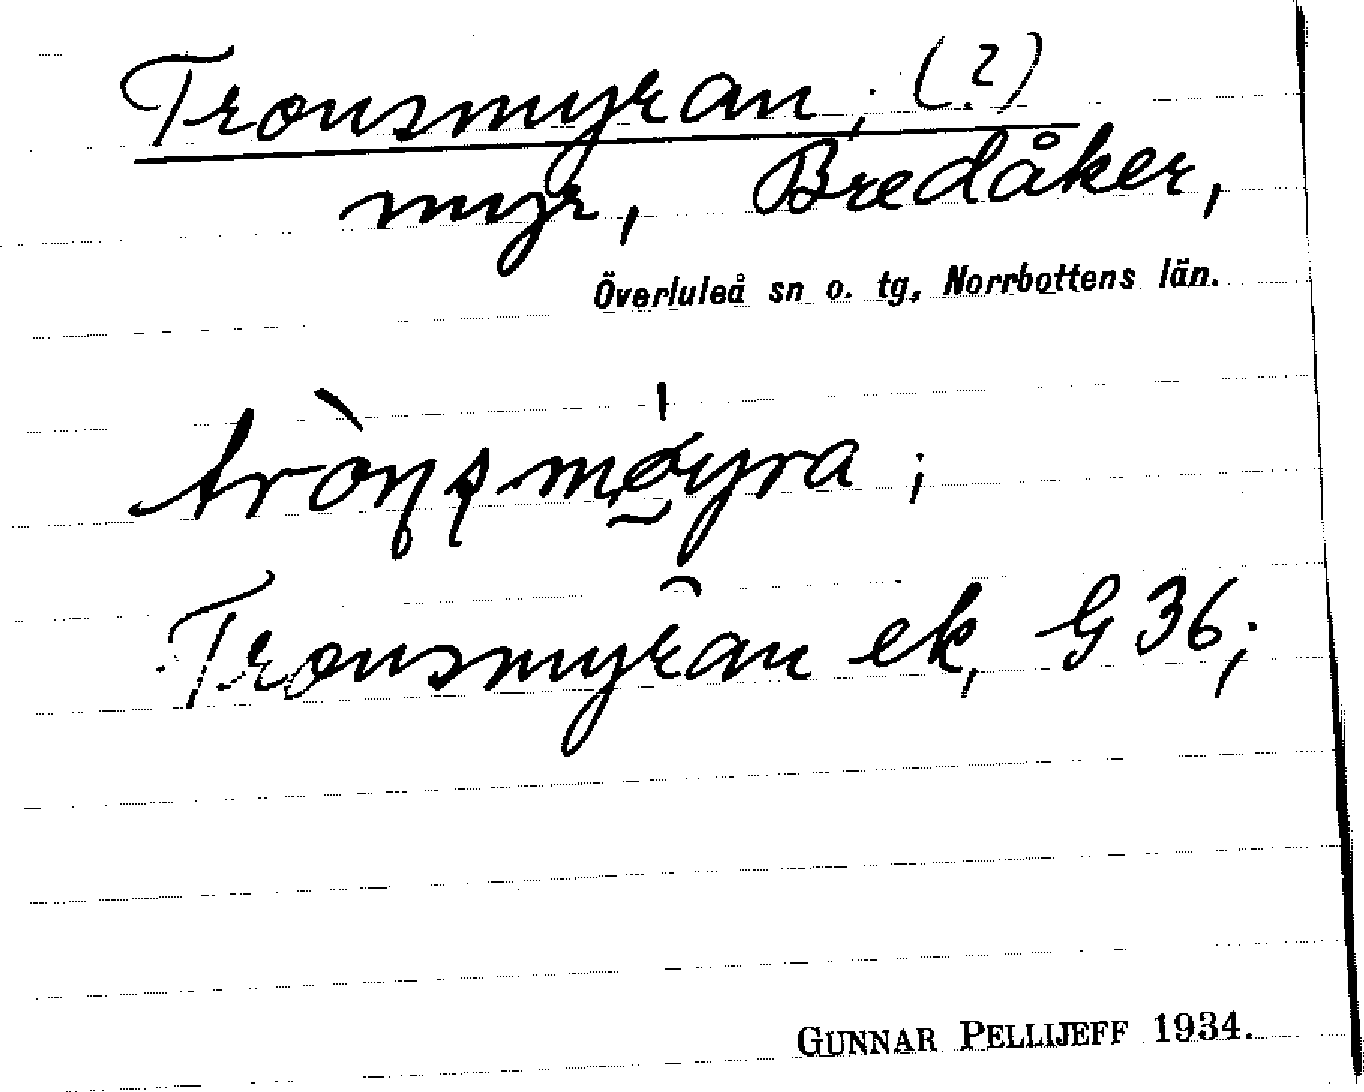 Tronsmyran; (?)
myr, Bredåker,
Överluleå sn o. tg, Norrbottens län.
Tronsmyran ek, G 36;
GUNNAR PELLIJEFF 1934.